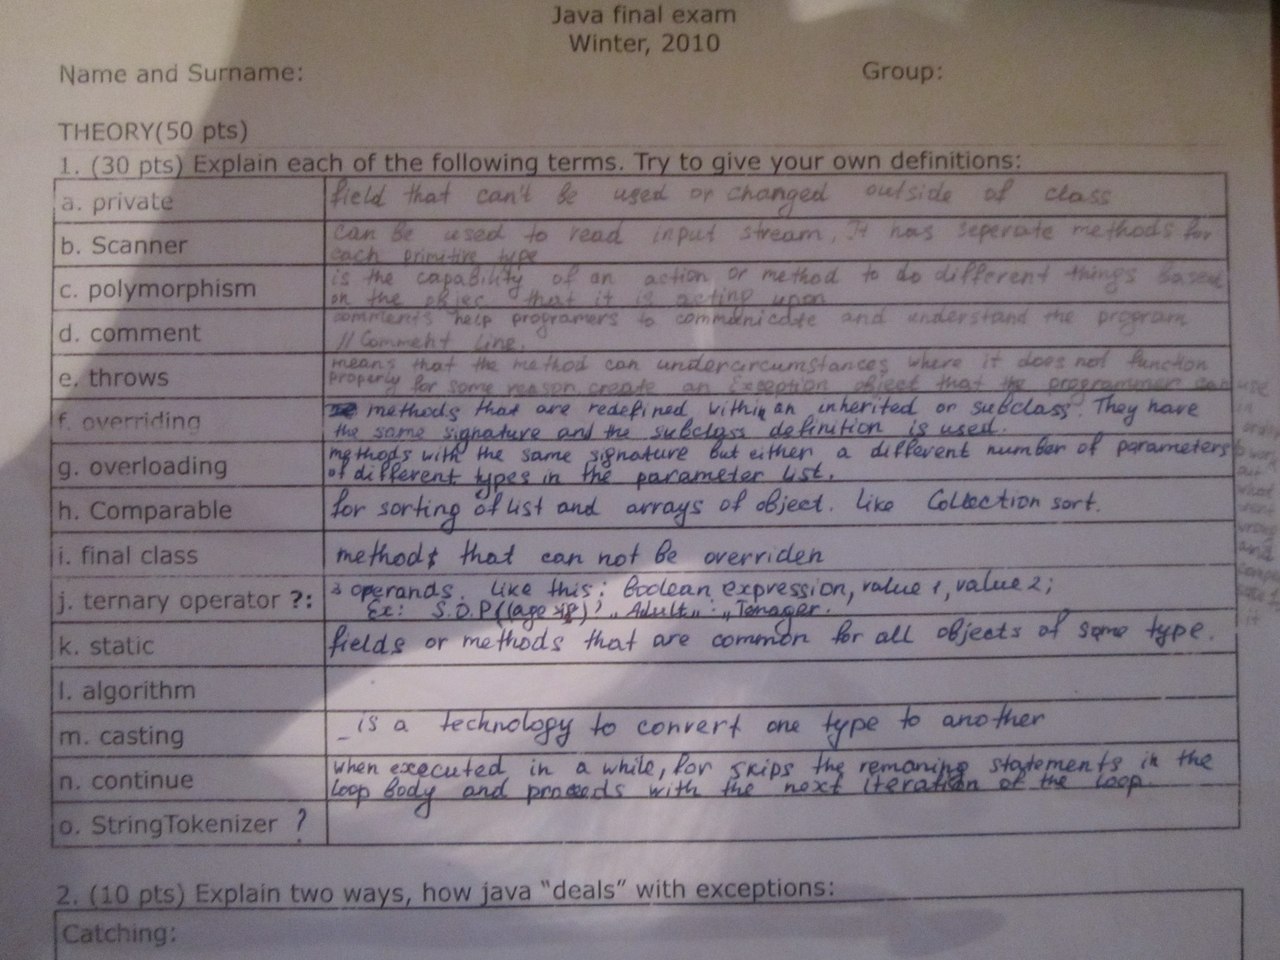 Java final exam
Winter, 2010
Name and Surname:
Group:
THEORY(50 pts)
1. (30 pts) Explain each of the following terms. Try to give your own definitions:
a. private
field that can't be used or changed outside of class
b. Scanner
can be used to read input stream, It has seperate methods for
each primitive type
c. polymorphism
is the capability of an action or method to do different things based
on the objec that it is acting upon
d. comment
comments help programers to communicate and understand the program
// Comment line.
e. throws
means that the method can undercircumstances where it does not function
properly for some reason create an exception object that the programmer can use
in
order
to work
out
what
went
wrong
and
it
f. overriding
methods that are redefined within an inherited or subclass. They have
the same signature and the subclass definition is used.
g. overloading
methods with the same signature but either a different number of parameters
of different types in the parameter list.
h. Comparable
for sorting of list and arrays of object. like Collection sort.
i. final class
methods that can not be overriden
j. ternary operator ?:
3 operands. like this: Boolean expression, value 1, value 2;
Ex: S.O.P((age >18)? „Adult„: „Tenager.
k. static
fields or methods that are common for all objects of same type.
l. algorithm
m. casting
_ is a technology to convert one type to another
n. continue
when executed in a while, for skips the remaning statements in the
loop body and proceeds with the next iteration of the loop.
o. StringTokenizer ?
2. (10 pts) Explain two ways, how java “deals” with exceptions:
Catching: